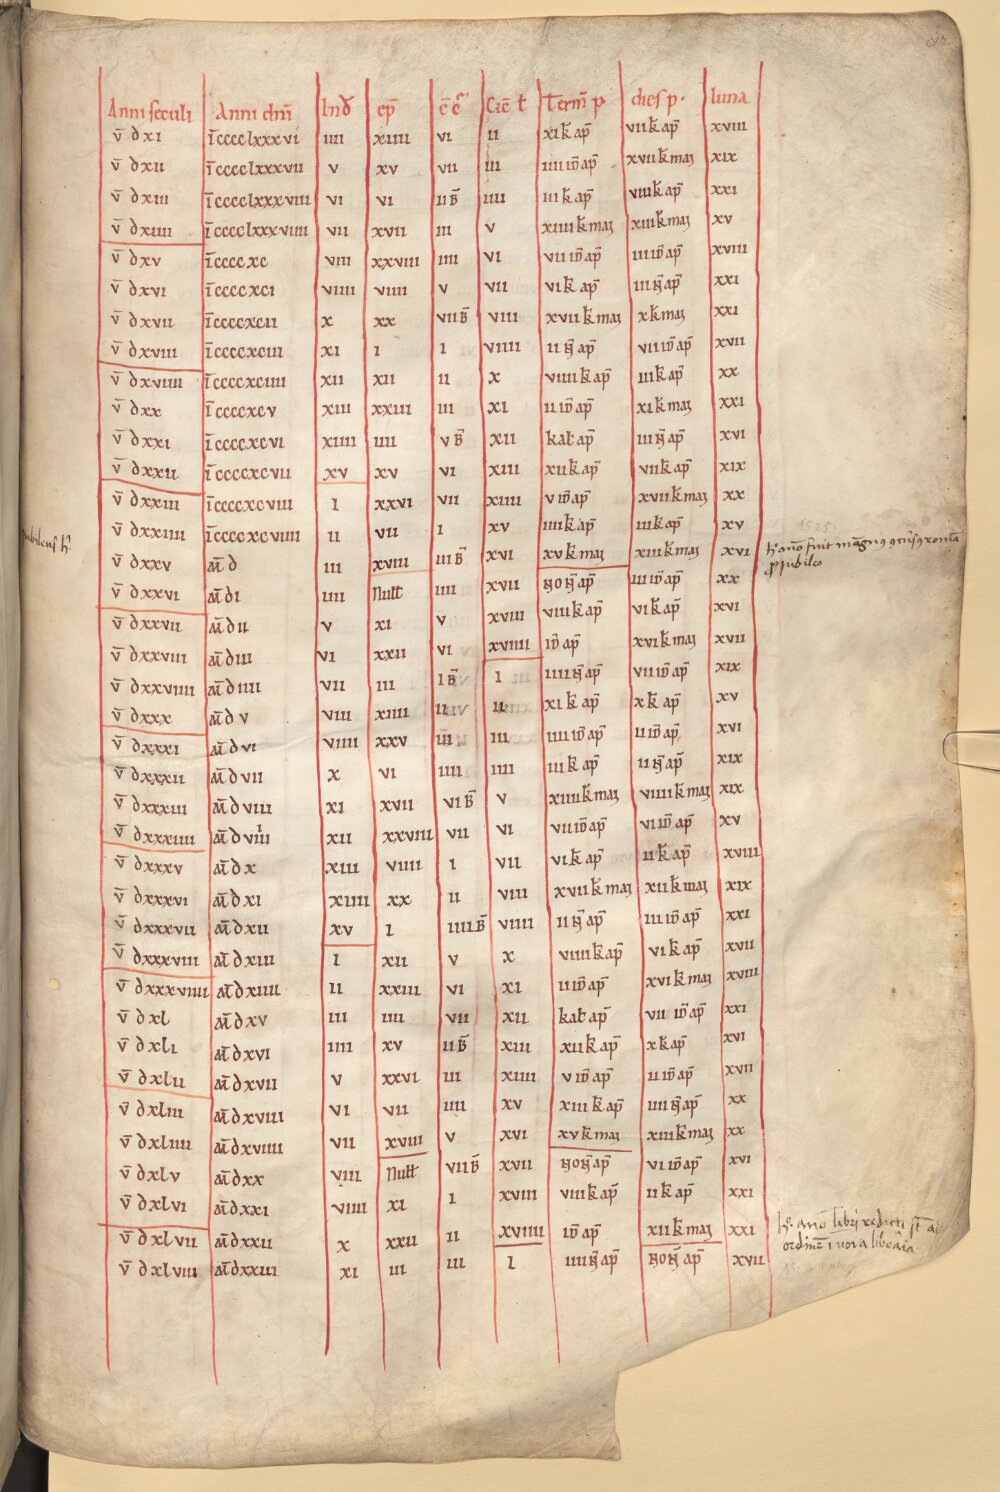 Anni seculi Anni dñi Ind̄ ep̄ c̄c̄ Cic̄ ł Term̄ p̄ dies p. luna
v̄ dxi ī cccclxxxvi iiii xiiii vi ii xi k̄ ap̄ vii k̄ ap̄ xviii
v̄ dxii ī cccclxxxvii v xv vii iii iiii id̄ ap̄ xvii k̄ mai xix
v̄ dxiii ī cccclxxxviii vi vi ii b̄ iiii iii k̄ ap̄ viii k̄ ap̄ xxi
v̄ dxiiii ī cccclxxxviiii vii xvii iii v xiiii k̄ mai xiii k̄ mai xv
v̄ dxv ī ccccxc viii xxviii iiii vi vii id̄ ap̄ iiii id̄ ap̄ xviii
v̄ dxvi ī ccccxci viiii viiii v vii vi k̄ ap̄ iii n̄ ap̄ xxi
v̄ dxvii ī ccccxcii x xx vii b̄ viii xvii k̄ mai x k̄ mai xxi
v̄ dxviii ī ccccxciii xi i i viiii ii n̄ ap̄ vii id̄ ap̄ xvii
v̄ dxviiii ī ccccxciiii xii xii ii x viiii k̄ ap̄ iii k̄ ap̄ xx
v̄ dxx ī ccccxcv xiii xxiii iii xi ii id̄ ap̄ xi k̄ mai xxi
v̄ dxxi ī ccccxcvi xiiii iiii v b̄ xii kał ap̄ iii n̄ ap̄ xvi
v̄ dxxii ī ccccxcvii xv xv vi xiii xii k̄ ap̄ vii k̄ ap̄ xix
v̄ dxxiii ī ccccxcviii i xxvi vii xiiii v id̄ ap̄ xvii k̄ mai xx
v̄ dxxiiii ī ccccxcviiii ii vii i xv iiii k̄ ap̄ iii k̄ ap̄ xv
v̄ dxxv m̄ d iii xviii iii b̄ xvi xv k̄ mai xiii k̄ mai xvi
v̄ dxxvi m̄ di iiii Null iiii xvii non̄ ap̄ iii id̄ ap̄ xx
v̄ dxxvii m̄ dii v xi v xviii viii k̄ ap̄ vi k̄ ap̄ xvi
v̄ dxxviii m̄ diii vi xxii vi xviiii id̄ ap̄ xvi k̄ mai xvii
v̄ dxxviiii m̄ diiii vii iii i b̄ i iiii n̄ ap̄ vii id̄ ap̄ xix
v̄ dxxx m̄ dv viii xiiii ii ii xi k̄ ap̄ x k̄ ap̄ xv
v̄ dxxxi m̄ dvi viiii xxv iii iii iiii id̄ ap̄ ii id̄ ap̄ xvi
v̄ dxxxii m̄ dvii x vi iiii iiii iii k̄ ap̄ ii n̄ ap̄ xix
v̄ dxxxiii m̄ dviii xi xvii vi b̄ v xiiii k̄ mai viiii k̄ mai xix
v̄ dxxxiiii m̄ dviiii xii xxviii vii vi vii id̄ ap̄ vi id̄ ap̄ xv
v̄ dxxxv m̄ dx xiii viiii i vii vi k̄ ap̄ ii k̄ ap̄ xviii
v̄ dxxxvi m̄ dxi xiiii xx ii viii xvii k̄ mai xii k̄ mai xix
v̄ dxxxvii m̄ dxii xv i iiii b̄ viiii ii n̄ ap̄ iii id̄ ap̄ xxi
v̄ dxxxviii m̄ dxiii i xii v x viiii k̄ ap̄ vi k̄ ap̄ xvii
v̄ dxxxviiii m̄ dxiiii ii xxiii vi xi ii id̄ ap̄ xvi k̄ mai xviii
v̄ dxl m̄ dxv iii iiii vii xii kał ap̄ vii id̄ ap̄ xxi
v̄ dxli m̄ dxvi iiii xv ii b̄ xiii xii k̄ ap̄ x k̄ ap̄ xvi
v̄ dxlii m̄ dxvii v xxvi iii xiiii v id̄ ap̄ ii id̄ ap̄ xvii
v̄ dxliii m̄ dxviii vi vii iiii xv xiii k̄ ap̄ iiii n̄ ap̄ xx
v̄ dxliiii m̄ dxviiii vii xviii v xvi xv k̄ mai xiii k̄ mai xx
v̄ dxlv m̄ dxx viii Null vii b̄ xvii non̄ ap̄ vi id̄ ap̄ xvi
v̄ dxlvi m̄ dxxi viiii xi i xviii viii k̄ ap̄ ii k̄ ap̄ xxi
v̄ dxlvii m̄ dxxii x xxii ii xviiii id̄ ap̄ xii k̄ mai xxi
v̄ dxlviii m̄ dxxiii xi iii iii i iiii n̄ ap̄ non̄ ap̄ xvii
1525
h° año fuit magn9 romā
p̄ jubileo
h° año libri redacti st̄ ad
ordinē ī nova libraria